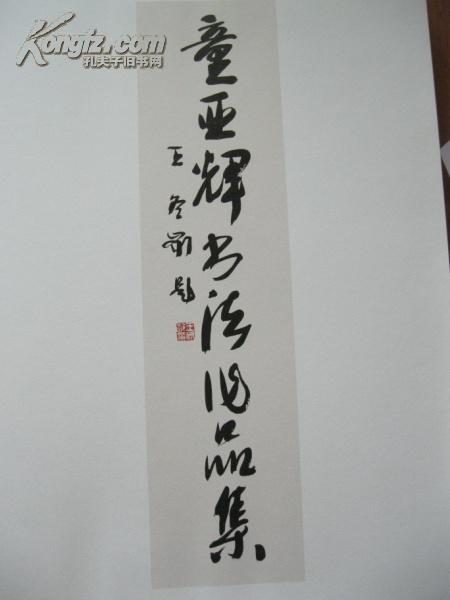 Kongfz.com
孔夫子旧书网
童亚辉书法作品集
王冬龄题